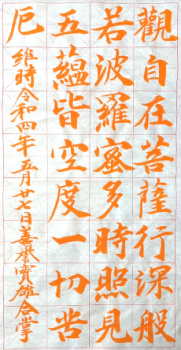 觀自在菩薩行深般
若波羅蜜多時照見
五蘊皆空度一切苦
厄
維時令和四年五月廿七日喜譽寳雄合掌